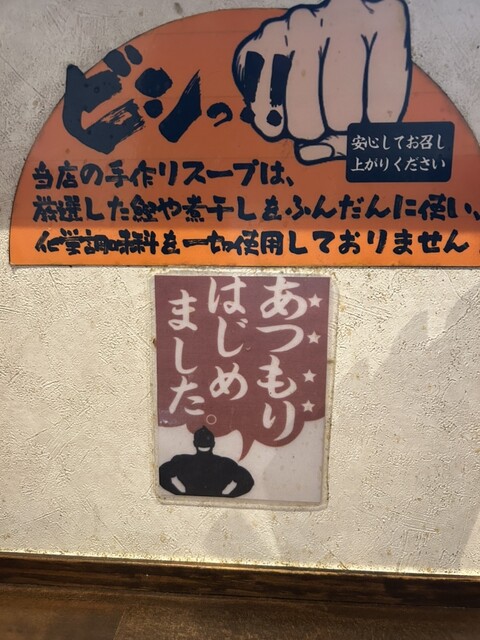 ビシっ!!
安心してお召し
上がりください
当店の手作りスープは、
厳選した鰹や煮干しをふんだんに使い、
化学調味料を一切使用しておりません!
あつもり
はじめ
ました。